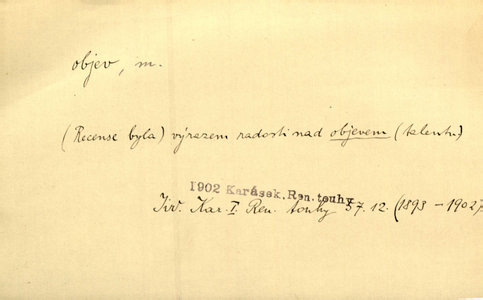 objev, m.
(Recense byla) výrazem radosti nad objevem (talentu)
1902 Karásek, Ren. touhy
Kar. I. Ren. touhy 57. 12. (1893 – 1902)